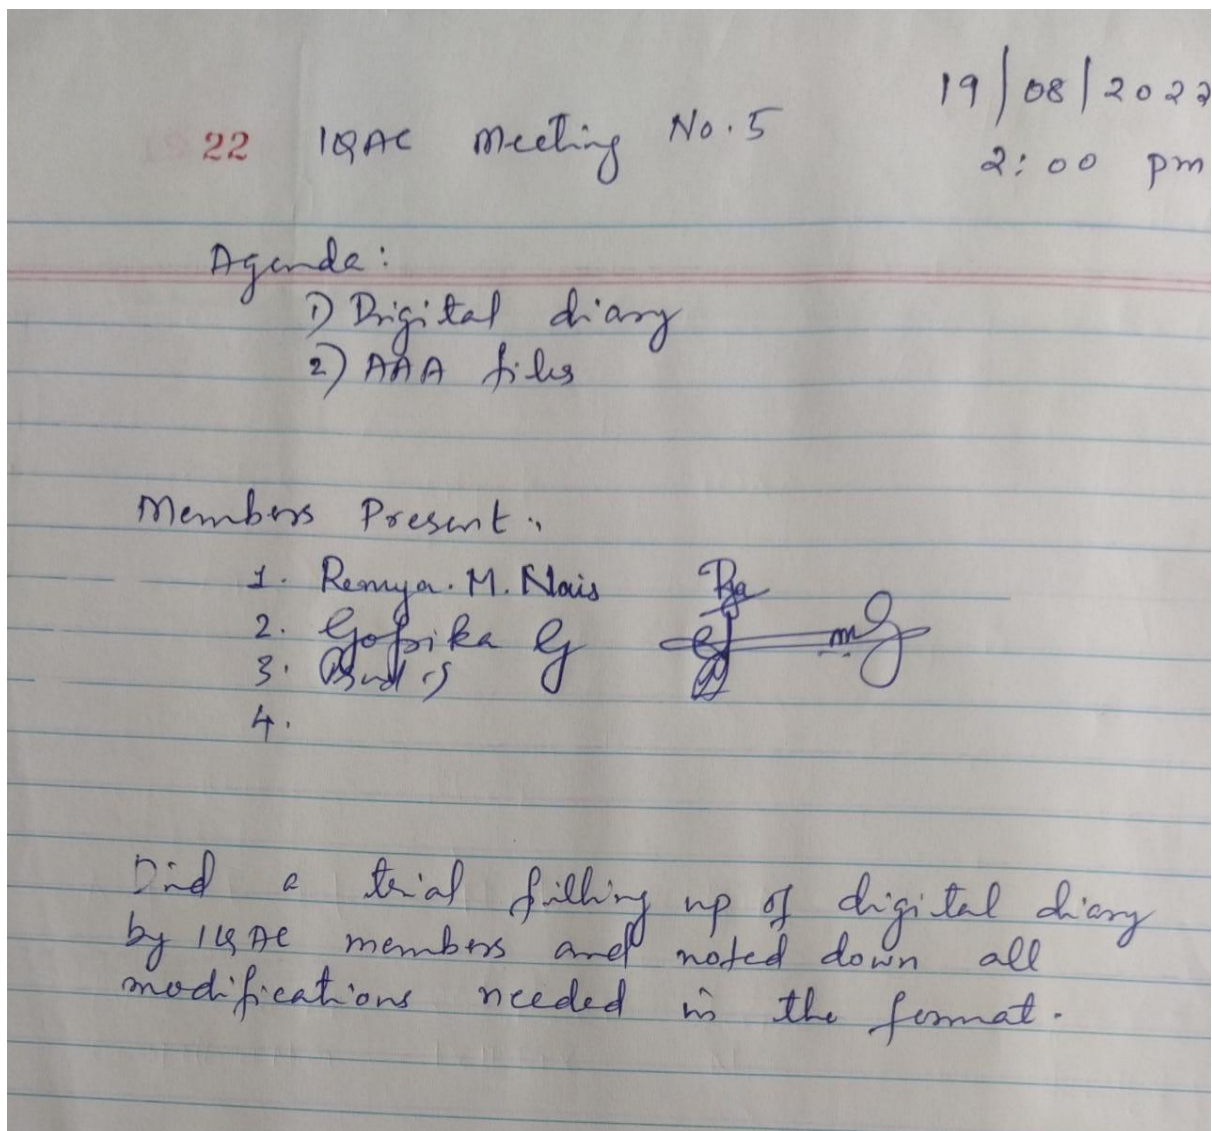 19/08/2022
22 IQAC Meeting No. 5
2:00 pm
Agenda:
1) Digital diary
2) AAA files
Members Present:
1. Remya. M. Nair
2. Gopika G
3.
4.
Did a trial filling up of digital diary
by IQAC members and noted down all
modifications needed in the format.